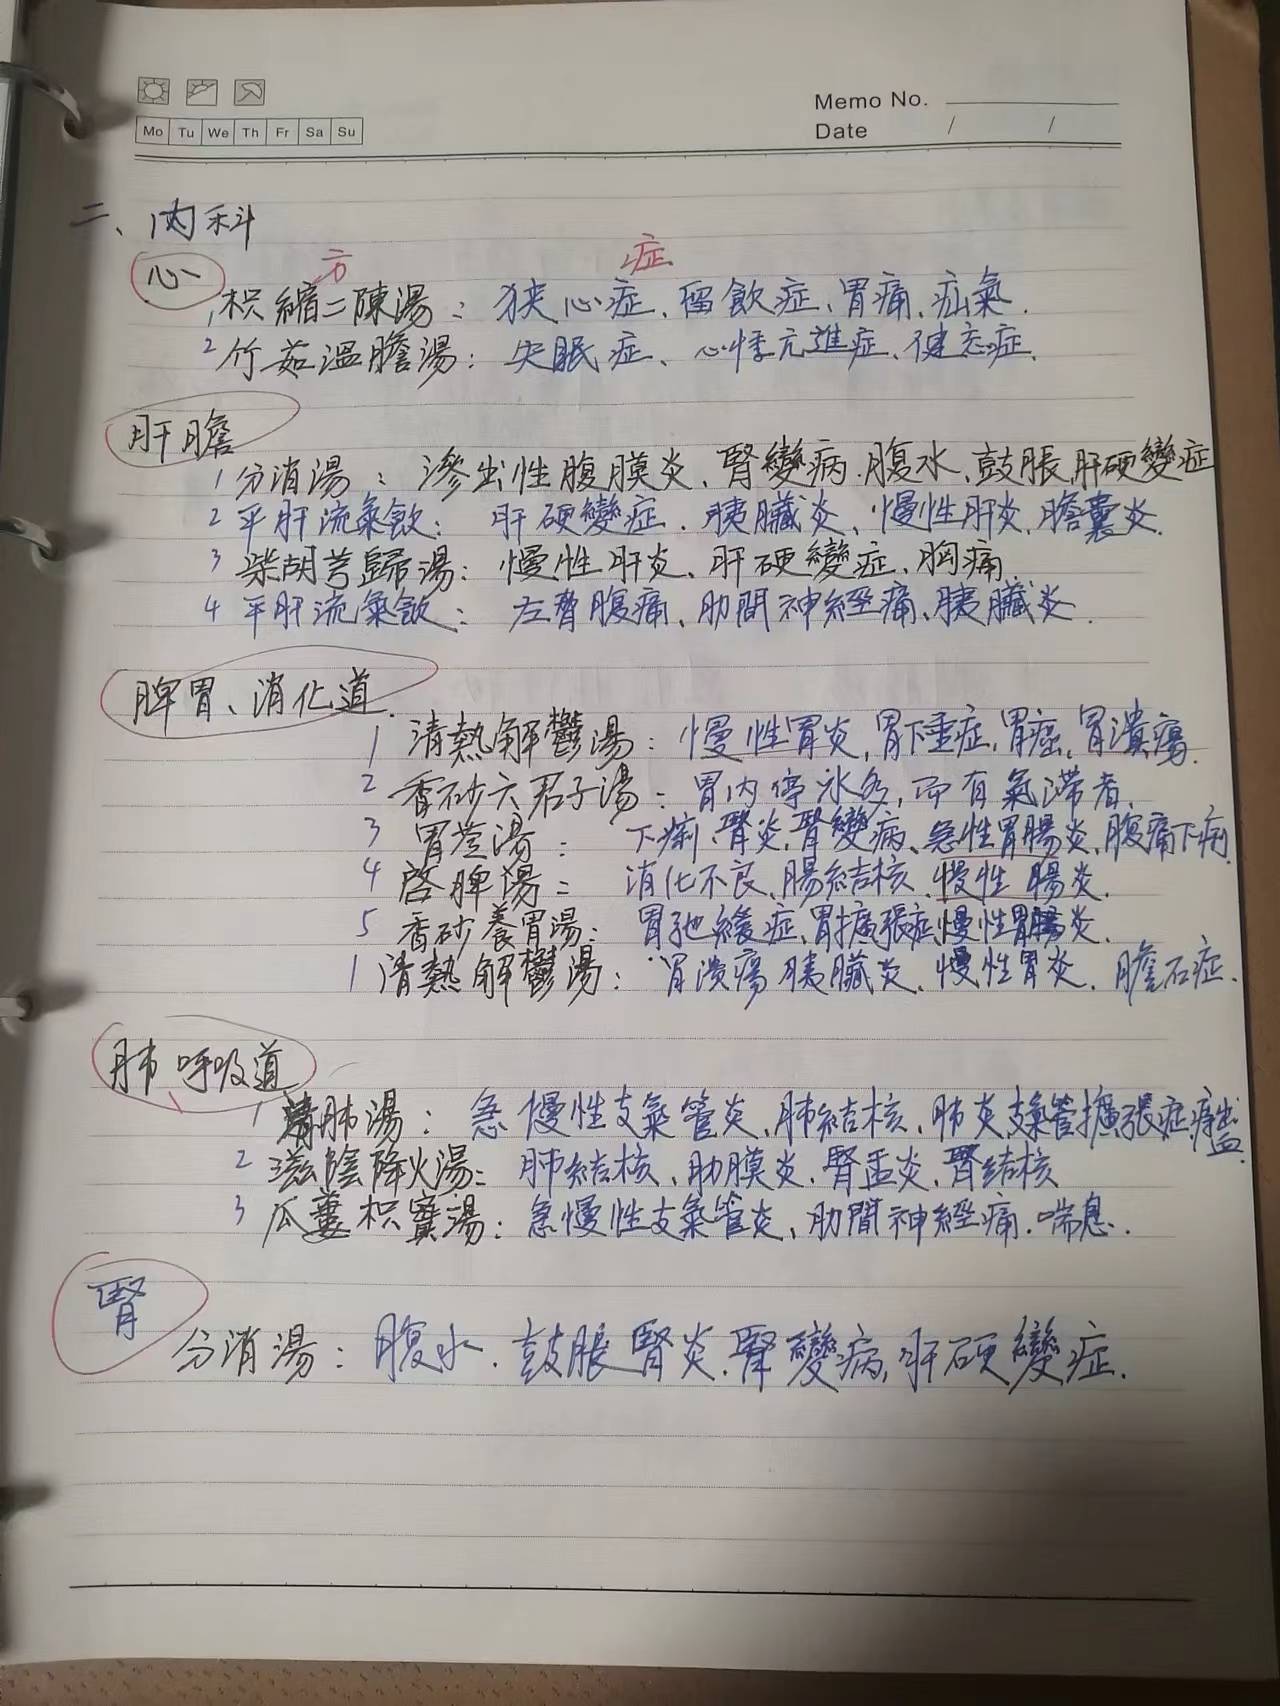 Memo No.
Mo Tu We Th Fr Sa Su
Date / /
二、内科
心
方 症
1 枳縮二陳湯：狭心症、留飲症、胃痛、疝氣.
2 竹茹溫膽湯：失眠症、心悸亢進症、健忘症.
肝膽
1 分消湯：滲出性腹膜炎、腎變病.腹水、鼓脹.肝硬變症
2 平肝流氣飲：肝硬變症.胰臟炎、慢性肝炎.膽囊炎.
3 柴胡芎歸湯：慢性肝炎、肝硬變症、胸痛.
4 平肝流氣飲：左脅腹痛、肋間神經痛、胰臟炎.
脾胃、消化道.
1 清熱解鬱湯：慢性胃炎，胃下垂症，胃癌，胃潰瘍.
2 香砂六君子湯：胃内停水多，而有氣滯者.
3 胃苓湯：下痢、腎炎，腎變病、急性胃腸炎、腹痛下痢.
4 啓脾湯：消化不良、腸結核.慢性腸炎.
5 香砂養胃湯：胃弛緩症、胃擴張症、慢性胃腸炎.
1 清熱解鬱湯：胃潰瘍.胰臟炎、慢性胃炎.膽石症.
肺 呼吸道
1 清肺湯：急慢性支氣管炎、肺結核、肺炎.支氣管擴張症.
2 滋陰降火湯：肺結核、肋膜炎.腎盂炎、腎結核
3 瓜蔞枳實湯：急慢性支氣管炎、肋間神經痛.喘息.
腎
分消湯：腹水.鼓脹.腎炎.腎變病，肝硬變症.